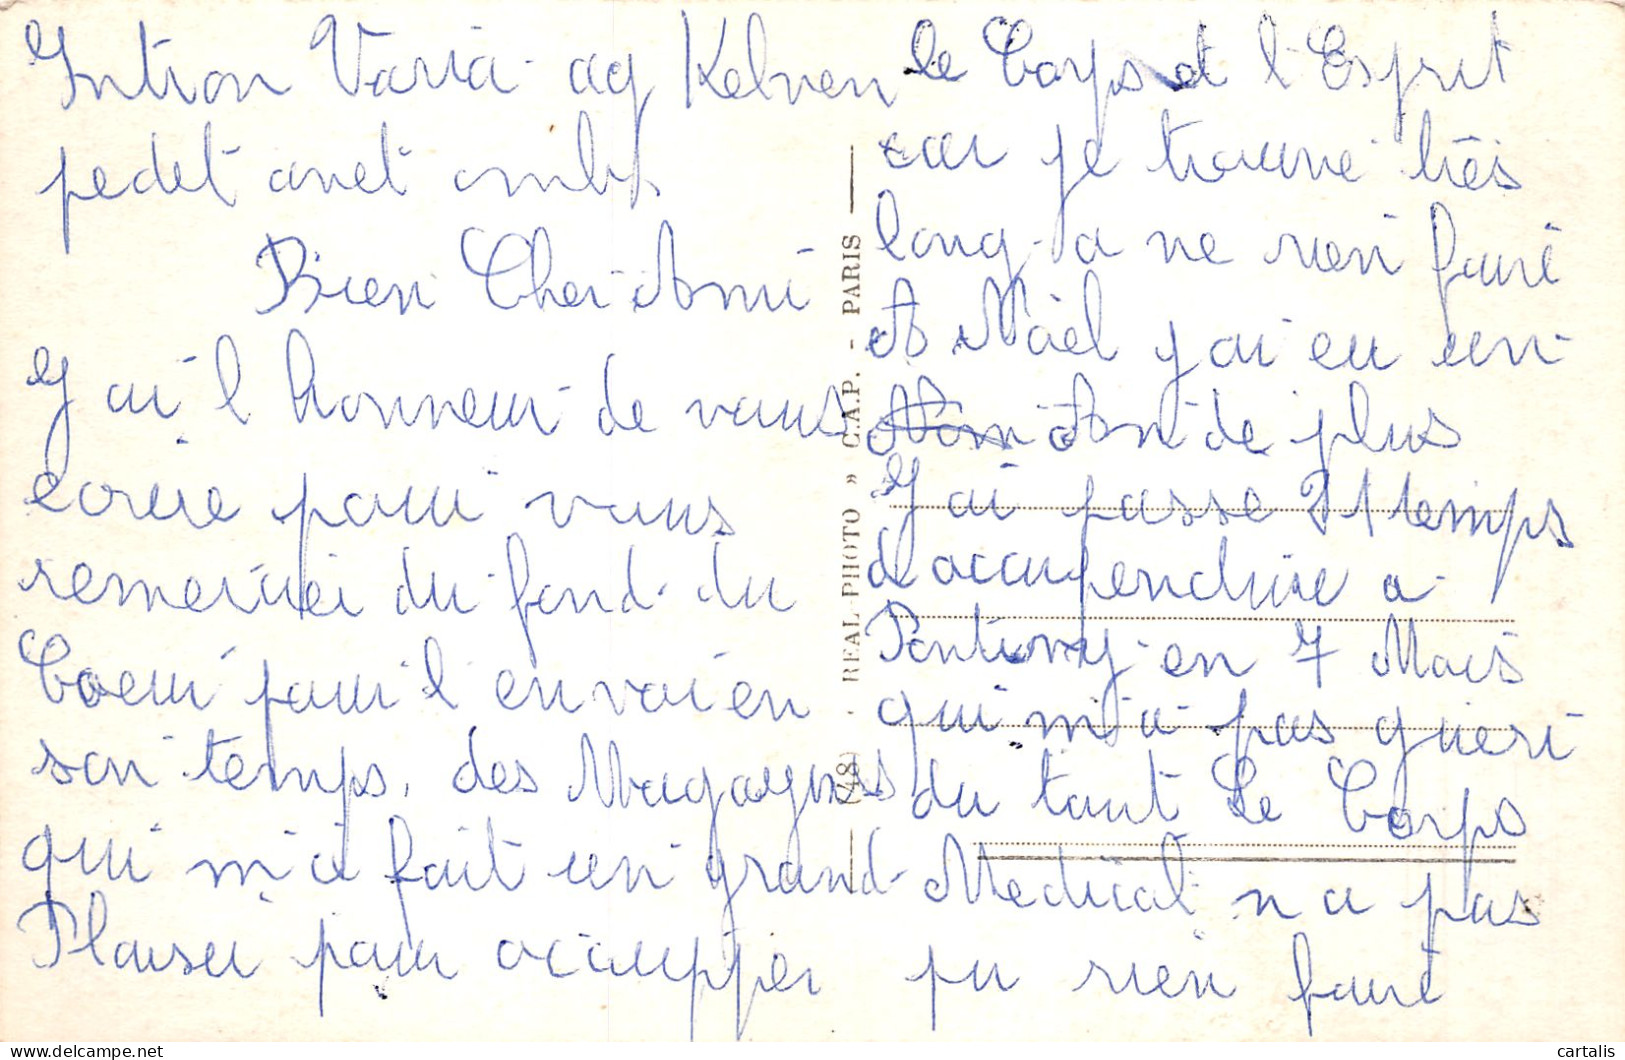 Intron Varia ag Kelven
pedet avet omb
Bien Cher Ami
J ai l honneur de vous
ecrire pour vous
remercier du fond du
Coeur pour l envoi en
son temps, des Magazines
qui m a fait un grand
Plaisir pour occupper
le Corps et l Esprit
car je trouve très
long a ne rien faire
A Noël j ai eu un
An de plus
J ai passe 21 temps
d accupencture a
Pontivy en 7 Mois
qui m a pas gueri
du tout Le Corps
Medical n a pas
pu rien faire
(48) · « REAL PHOTO » C.A.P. - PARIS
cartalis